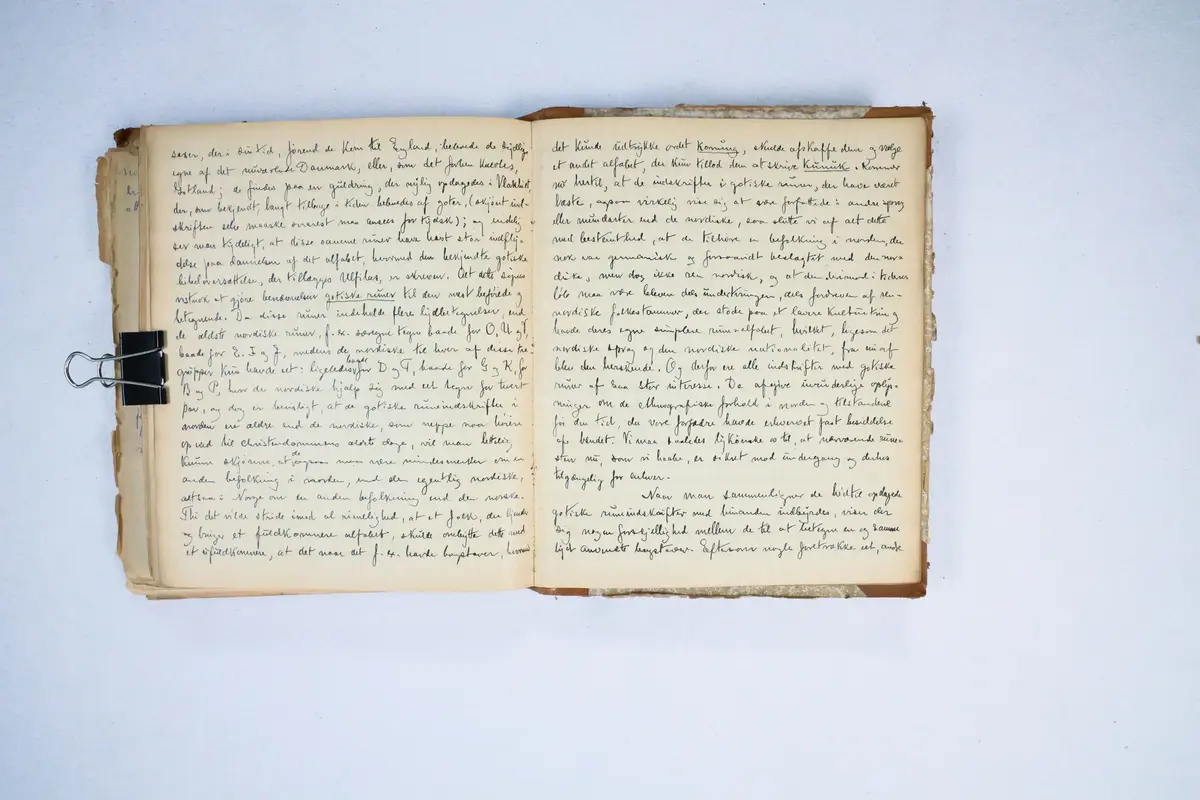 saxer, der i sin tid, førend de kom til England, beboede de sydlige
egne af det nuværende Danmark, eller, som det forhen kaldtes,
Gotland; de findes paa en guldring, der nylig opdagedes i Vlakhiet
der, som bekjendt, langt tilbage i tiden beboedes af goter, (skjönt ind-
skriften selv maaske snarest maa ansees for tydsk); og endelig
ser man tydeligt, at disse samme runer have havt stor indfly-
delse paa dannelsen af det alfabet, hvormed den bekjendte gotiske
bibeloversættelse, der tillægges Ulfilas, er skreven. Alt dette synes
nstærk at gjöre benævnelsen gotiske runer til den mest beföiede og
betegnende. Da disse runer indeholde flere lydbetegnelser, end
de ældste nordiske runer, f. ex. særegne tegn baade for O, U og Y,
baade for E, I og J, medens de nordiske til hver af disse tre
grupper kun havde et: ligeledes baade for D og T, baade for G og K, for
B og P, hvor de nordiske hjalp sig med eet tegn for hvert
par, og dog er beviisligt, at de gotiske runeindskrifter i
norden ere ældre end de nordiske, som neppe naa höiere
op end til christendommens første dage, vil man lettelig
kunne skjönne, at de ogsaa maa være mindesmerker om en
anden befolkning i norden, end den egentlig nordiske,
altsaa i Norge om en anden befolkning end den norske.
Thi det vilde stride imod al rimelighed, at et folk, der kjender
og bruger et fuldkomnere alfabet, skulde ombytte dette med
et ufuldkomnere, at det naar det f. ex. havde bogstaver, hvormed
det kunde udtrykke ordet Konung, skulde afskaffe dem og vælge
et andet alfabet, der kun tillod dem at skrive Kunuk. Kommer
nu hertil, at de indskrifter i gotiske runer, der have været
læste, ogsaa virkelig vise sig at være forfattede i andre sprog
eller mundarter end de nordiske, saa slutte vi af alt dette
med bestemthed, at de tilhöre en befolkning i norden, der
nok var germanisk og forsaavidt beslægtet med den nor-
diske, men dog ikke reen nordisk, og at den derimod i tidernes
löb maa være bleven dels undertvungen, dels fordreven af reen-
nordiske folkestammer, der stode paa et lavere kulturtrin og
havde deres egne simplere runealfabet, hvilket, ligesom det
nordiske sprog og den nordiske nationalitet, fra nu af
blev den herskende. Og derfor ere alle indskrifter med gotiske
runer af saa stor interesse. De afgive umiddelbare oplys-
ninger om de ethnografiske forhold i norden og tilstandene
för den tid, da vore forfædre havde erhvervet fast besiddelse
af landet. Vi maa saaledes lykönske os til, at nærværende rune-
sten nu, som vi haabe, er sikret mod undergang og derhos
tilgjængelig for enhver.
Naar man sammenligner de hidtil opdagede
gotiske runeindskrifter med hinanden indbyrdes, viser der
sig nogen forskjellighed mellem de til at betegne en og samme
lyd anvendte bogstaver. Eftersom nogle foretrække eet, andre